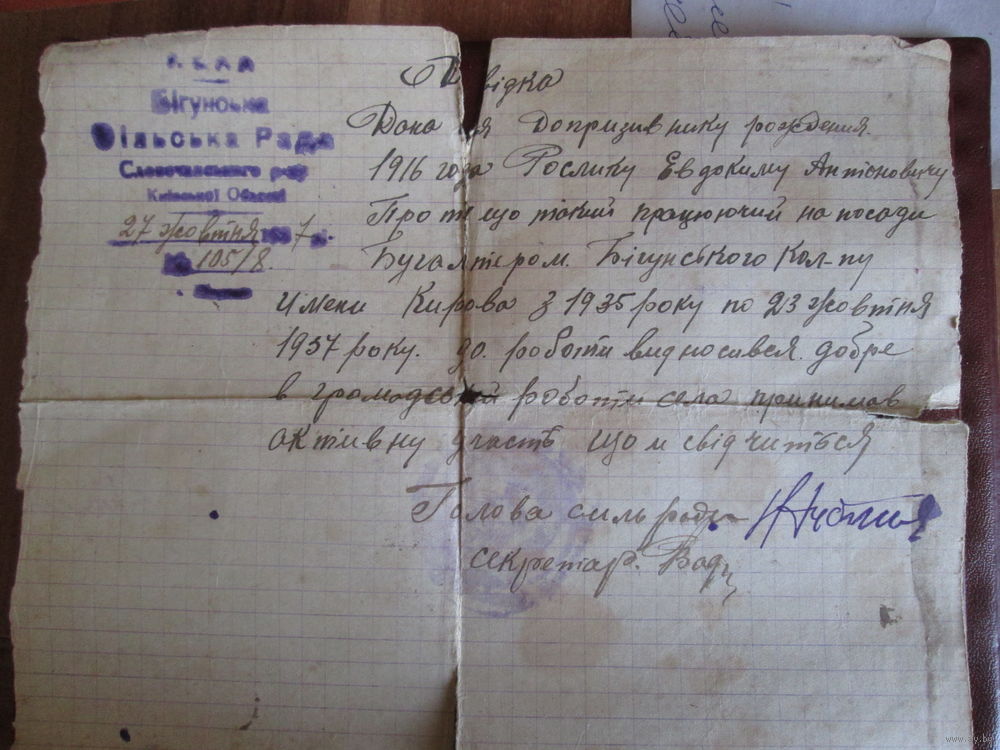 Бігунська
Сільська Рада
Словечанського р-ну
Київської Області
27 жовтня 7
105/8.
Довідка
Дана ця Допризивнику рождения.
1916 года Рослику Евдокиму Антіоновичу
Про те що такий працюючий на посади
Бугалтером. Бігунського Кол-пу
имени Кирова з 1935 року по 23 жовтня
1937 року. до. роботи видносився. добре
в громадській роботи села принимав
активну участь що и свідчиться
Голова сильради
секретар.